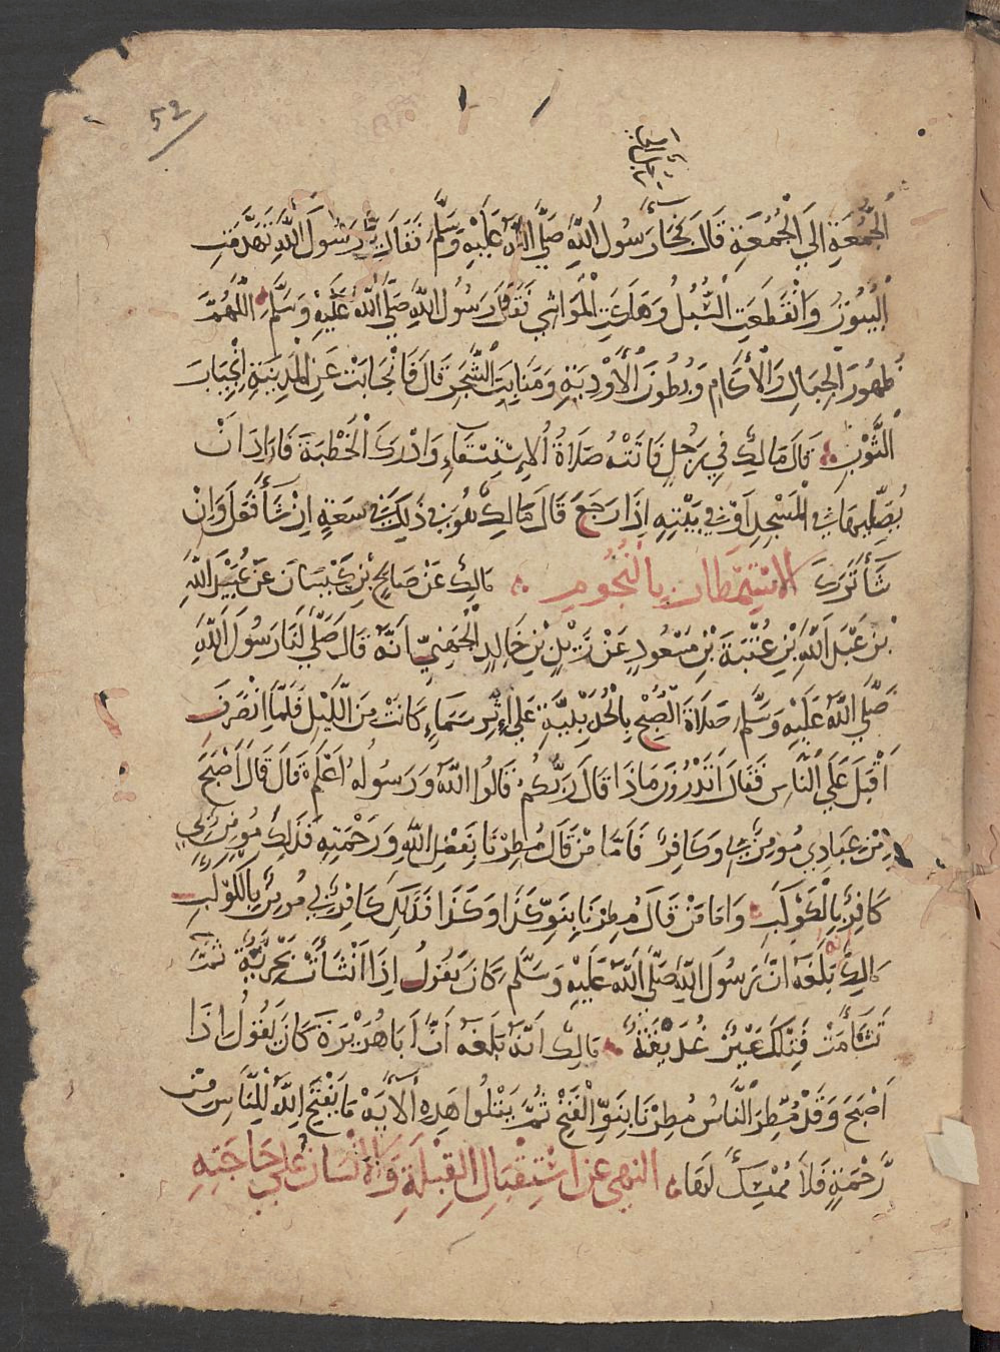 52
الْجُمُعَةِ إِلَى الْجُمُعَةِ قَالَ فَجَاءَ رَسُولَ اللَّهِ صَلَّى اللَّهُ عَلَيْهِ وَسَلَّمَ فَقَالَ يَا رَسُولَ اللَّهِ تَهَدَّمَتِ
الْبُيُوتُ وَانْقَطَعَتِ السُّبُلُ وَهَلَكَتِ الْمَوَاشِي فَقَالَ رَسُولُ اللَّهِ صَلَّى اللَّهُ عَلَيْهِ وَسَلَّمَ اللَّهُمَّ
ظُهُورَ الْجِبَالِ وَالْأَكَامِ وَبُطُونَ الْأَوْدِيَةِ وَمَنَابِتَ الشَّجَرِ قَالَ فَانْجَابَتْ عَنِ الْمَدِينَةِ انْجِيَابَ
الثَّوْبِ قَالَ مَالِك فِي رَجُلٍ فَاتَتْهُ صَلَاةُ الْاِسْتِسْقَاءِ وَادْرَكَ الْخُطْبَةَ فَارَادَ انْ
يُصَلِّيهَا فِي الْمَسْجِدِ اَوْ فِي بَيْتِهِ اِذَا رَجَعَ قَالَ مَالِك هُوَ مِنْ ذَلِكَ فِي سَعَةٍ اِنْ شَأَ فَعَلَ وَاِنْ
شَأَ تَرَكَ الاسْتِمْطَار بِالنُّجُومِ مَالِك عَنْ صَالِحِ بْنِ كَيْسَانَ عَنْ عُبَيْدِ اللَّهِ
بْنِ عَبْدِ اللَّهِ بْنِ عُتْبَةَ بْنِ مَسْعُودٍ عَنْ زَيْدِ بْنِ خَالِدٍ الْجُهَنِيِّ اَنَّهُ قَالَ صَلَّى لَنَا رَسُولُ اللَّهِ
صَلَّى اللَّهُ عَلَيْهِ وَسَلَّمَ صَلَاةَ الصُّبْحِ بِالْحُدَيْبِيَّةِ عَلَى اِثْرِ سَمَاءٍ كَانَتْ مِنَ اللَّيْلِ فَلَمَّا انْصَرَفَ
اَقْبَلَ عَلَى النَّاسِ فَقَالَ اَتَدْرُونَ مَاذَا قَالَ رَبُّكُمْ قَالُوا اللَّهُ وَرَسُولُهُ اَعْلَمُ قَالَ قَالَ اَصْبَحَ
مِنْ عِبَادِي مُومِنٌ بِي وَكَافِرٌ فَاَمَّا مَنْ قَالَ مُطِرْنَا بِفَضْلِ اللَّهِ وَرَحْمَتِهِ فَذَلِكَ مُومِنٌ بِي
كَافِرٌ بِالْكَوْكَبِ وَاَمَّا مَنْ قَالَ مُطِرْنَا بِنَوِّ كَذَا وَكَذَا فَذَلِكَ كَافِرٌ بِي مُومِنٌ بِالْكَوْكَبِ
مَالِك انه بَلَغَهُ اَنَّ رَسُولَ اللَّهِ صَلَّى اللَّهُ عَلَيْهِ وَسَلَّمَ كَانَ يَقُولُ اِذَا اَنْشَأَتْ بَحْرِيَّةٌ ثُمَّ
تَشَأَمَتْ فَتِلْكَ عَيْنٌ غُدَيْقَةٌ مَالِك اَنَّهُ بَلَغَهُ اَنَّ اَبَا هُرَيْرَةَ كَانَ يَقُولُ اِذَا
اَصْبَحَ وَقَدْ مُطِرَ النَّاسُ مُطِرْنَا بِنَوِّ الْفَتْحِ ثُمَّ يَتْلُوا هَذِهِ الْاَيَةَ مَا يَفْتَحِ اللَّهُ لِلنَّاسِ مِنْ
رَّحْمَةٍ فَلَا مُمْسِكَ لَهَا النهي عن اسْتِقْبَالِ الْقِبْلَةِ وَالْاِنْسَان عَلَى حَاجَتِهِ